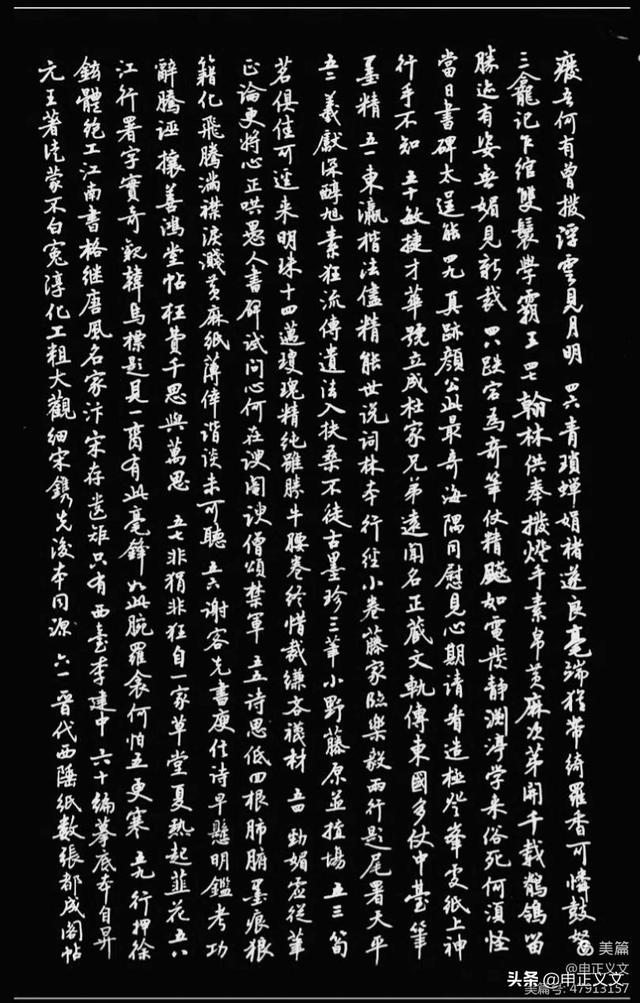 瘦吾何有曾撥浮雲見月明 四六 青瑣蟬娟褚遂良毫端猶帶綺羅香可憐鼓努
三龕記乍綰雙鬟學霸王 四七 翰林供奉撥燈手素帛黃麻次第開千載鶺鴒留
勝迹有姿無媚見新裁 四八 跌宕為奇筆仗精飈如電發靜淵渟學來俗死何須怪
當日書碑太逞能 四九 真跡顏公此最奇海隅同慰見心期請看造極登峰處紙上神
行手不知 五十 敏捷才華號立成杜家兄弟遠聞名正藏文軌傳東國多仗中臺筆
墨精 五一 東瀛楷法儘精能世說詞林本行經小卷藤家臨樂毅兩行題尾署天平
五二 羲獻深醇旭素狂流傳遺法入扶桑不徒古墨珍三筆小野藤原並擅場 五三 筍
茗俱佳可逕來明珠十四邁瓊瑰精純雖勝牛腰卷終惜裁縑吝襪材 五四 勁媚虛從筆
正論更將心正哄愚人書碑試問心何在諛閹諛僧頌禁軍 五五 詩思低回根肺腑墨痕狼
籍化飛騰滿襟淚濺黃麻紙薄倖諧談未可聽 五六 謝客先書庾信詩早懸明鑑考功
辭騰誣攘善鴻堂帖枉費千思與萬思 五七 非狷非狂自一家草堂夏熱起韭花 五八
江行署字實奇觀韓馬標題見一斑有此毫鋒如此腕羅衾何怕五更寒 五九 行押徐
鉉體絶工江南書格繼唐風名家汴宋存遺矩只有西臺李建中 六十 編摹底本自昇
元王著沉蒙不白冤淳化工粗大觀細宋鐫先後本同源 六一 晉代西陲紙數張都成閣帖
美篇
@申正义文
美篇号: 47913157
头条 @申正义文